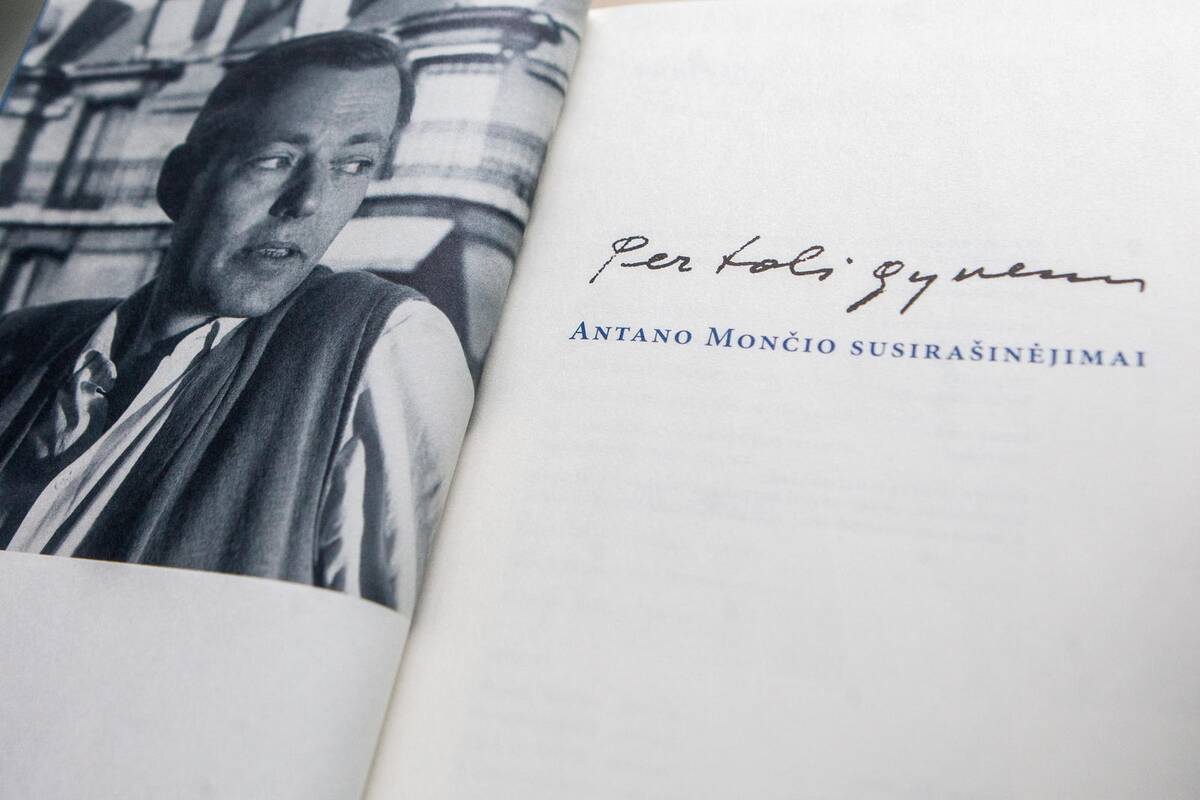 Per toli gyvenu
ANTANO MONČIO SUSIRAŠINĖJIMAI